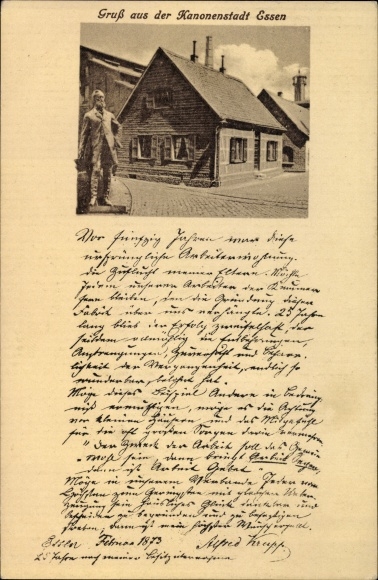 Gruß aus der Kanonenstadt Essen
Vor fünfzig Jahren war diese
ursprüngliche Arbeiterwohnung
die Zuflucht meiner Eltern. Möchte
jedem unserer Arbeiter der Kummer
fern bleiben, den die Gründung dieser
Fabrik über uns verhängte. 25 Jahre
lang blieb der Erfolg zweifelhaft, der
seitdem allmählig die Entbehrungen,
Anstrengungen, Zuversicht und Beharr-
lichkeit der Vergangenheit endlich so
wunderbar belohnt hat.
Möge dieses Beispiel Andere in Bedräng-
niß ermuthigen, möge es die Achtung
vor kleinen Häusern und das Mitgefühl
für die oft großen Sorgen darin vermehren.
"Der Zweck der Arbeit soll das Gemein-
wohl sein, dann bringt Arbeit Segen,
dann ist Arbeit Gebet."
Möge in unserem Verbande Jeder vom
Höchsten zum Geringsten mit gleicher Ueber-
zeugung sein häusliches Glück dankbar und
bescheiden zu begründen und zu befestigen
streben, dann ist mein höchster Wunsch erfüllt.
Essen Februar 1873 Alfred Krupp.
25 Jahre nach meiner Besitzübernahme